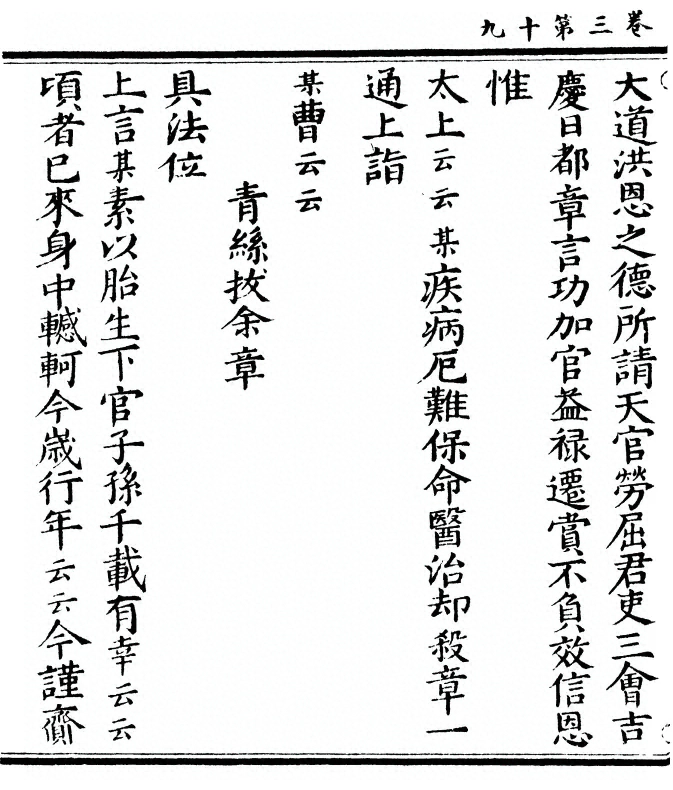 卷三第十九
大道洪恩之德所請天官勞屈君吏三會吉
慶日都章言功加官益祿遷賞不負效信恩
惟
太上云云某疾病厄難保命醫治却殺章一
通上詣
某曹云云
青絲拔余章
具法位
上言某素以胎生下官子孫千載有幸云云
頃者已來身中轗軻今歲行年云云今謹齎